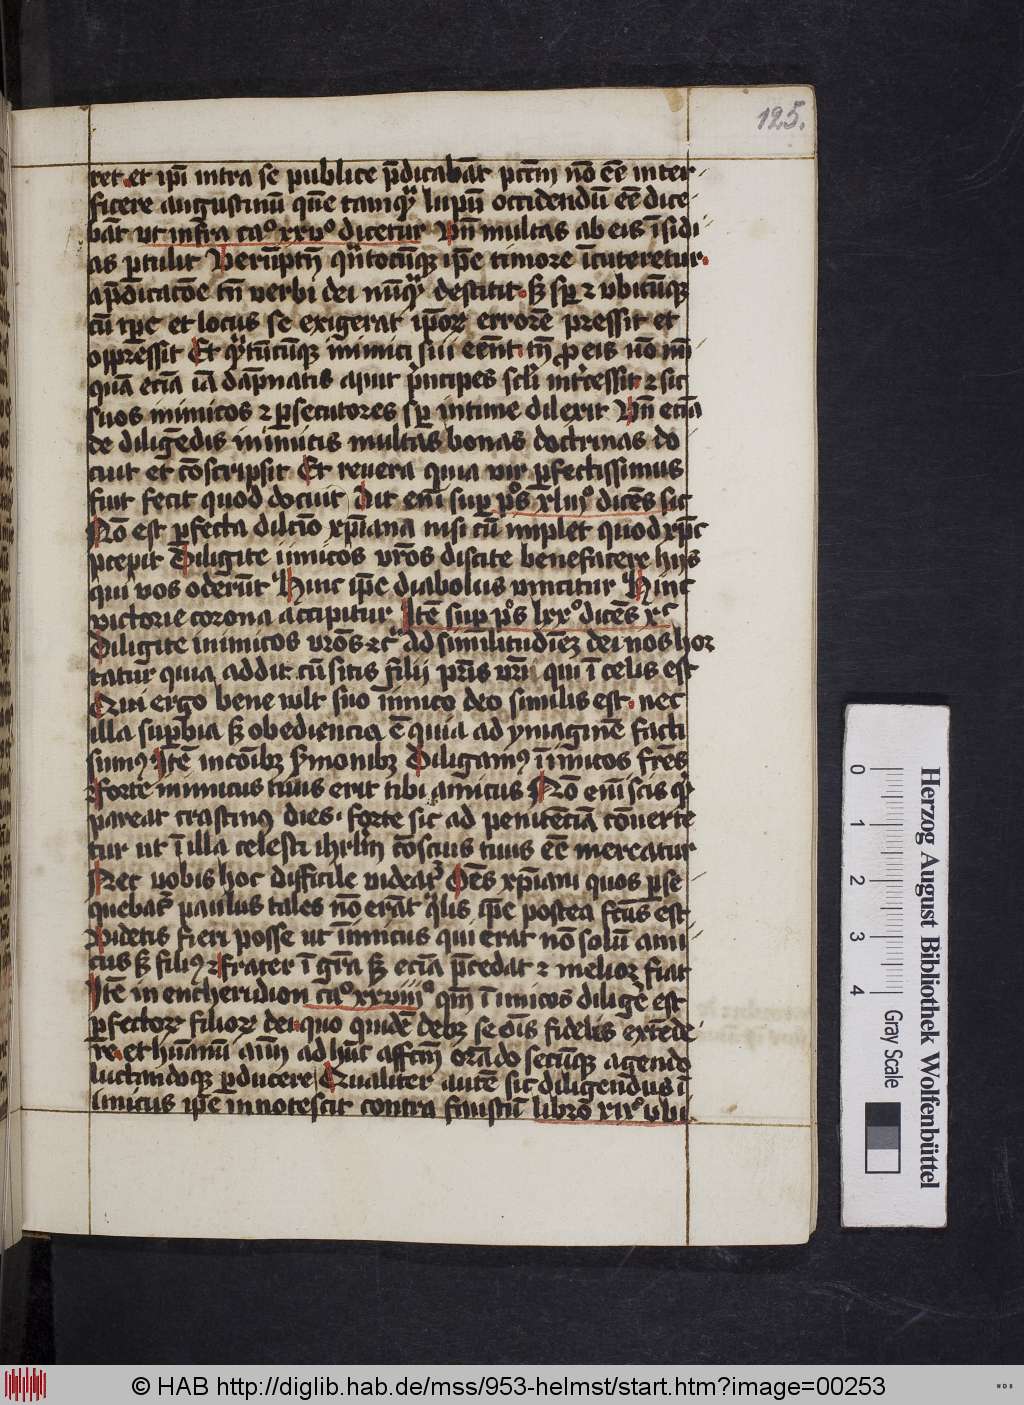 125.
ret. et ip̄i intra se publice p̄dicabāt pctm̄ nō eē inter-
ficere augustinū quē tamqͣ lupū occidendū eē dice-
bāt ut infra caº xxvº dicetur Vn̄ multas ab eis īsidi-
as ptulit Verūptn̄ qn̄tocūqꝫ ipē timore īcuteretur.
a p̄dicatōe tn̄ verbi dei nūqͣ destitit. sꝫ sp̄ ⁊ vbicūqꝫ
cū tp̄e et locus se exigerat ip̄oꝝ errorē pressit et
oppressit Et qͣtūcūqꝫ inimici sui eēnt. tn̄ ꝓ eis nō nū-
quā eciā iā dāpnatis aput p̄ncipes scl̄i int͛cessit. ⁊ sic
suos inimicos ⁊ ꝑsecutores sp̄ intime dilexit Vn̄ eciā
de diligēdis inimicis multas bonas doctrinas do
cuit et cōscripsit Et revera quia vir ꝑfectissimus
fuit fecit quod docuit Dit eni sup pˢ xliiiº dicēs sic
Nō est ꝑfecta dilcīo xp̄iana nisi cū implet quod xp̄c
pcepit Diligite iimicos vrōs discite benefacere hijs
qui vos oderūt Hinc ipē diabolus vincitur Hinc
victorie corona accipitur Itē sup pˢ lxxº dicēs xᶜ
Diligite inimicos vrōs ⁊cͣ ad similitudīeꝫ dei nos hor
tatur quia addit. cū sitis filij pr̄is vr̄i qui ī celis est
Qui ergo bene vult suo īimico deo similis est. nec
illa supbia sꝫ obediencia ē quia ad ymaginē facti
sumꝰ Itē in cōibꝫ s̄monibꝫ Diligamꝰ īimicos frēs
forte inimicus tuus erit tibi amicus Nō enī scis qͥ
pareat crastinꝰ dies. forte sic ad penitēciā cōverte
tur ut ī illa celesti ihrlm̄ cōscius tuus eē mereatur
Nec vobis hoc difficile videat͛ Oēs xp̄iani quos ꝑse-
quebat͛ paulus tales nō erāt qͣlis ipē postea fctūs est
Videtis fieri posse ut īimicus qui erat nō solū ami-
cus sꝫ filiꝰ ⁊ frater ī gr̄a sꝫ eciā p̄cedat ⁊ melior fiat
Itē in encheridion caº xxviiiº qm̄ īimicos diligē est
ꝑfectoꝝ filioꝝ dei. quo quidē debꝫ se oīs fidelis extēde-
re. et hūanū aīm ad hūc affctm̄ orādo secūqꝫ agendo
luctandoqꝫ ꝑducere Qualiter autē sic diligendus ī
imicus ipē innotescit contra faustū librō xixº vbi
Herzog August Bibliothek Wolfenbüttel
0 1 2 3 4
Gray Scale
© HAB http://diglib.hab.de/mss/953-helmst/start.htm?image=00253